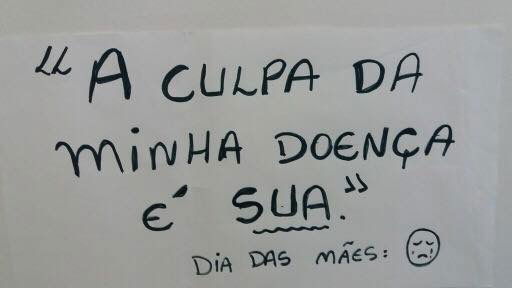 "A CULPA DA
MINHA DOENÇA
É SUA."
DIA DAS MÃES: